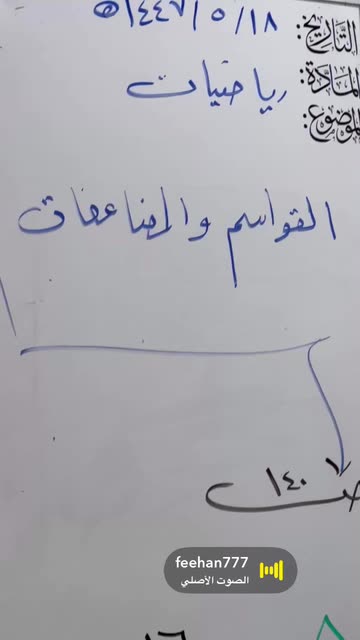 التاريخ: ١٨ / ٥ / ١٤٤٧هـ
المادة: رياضيات
الموضوع:
القواسم والمضاعفات
ص ١٤٠
feehan777
الصوت الأصلي